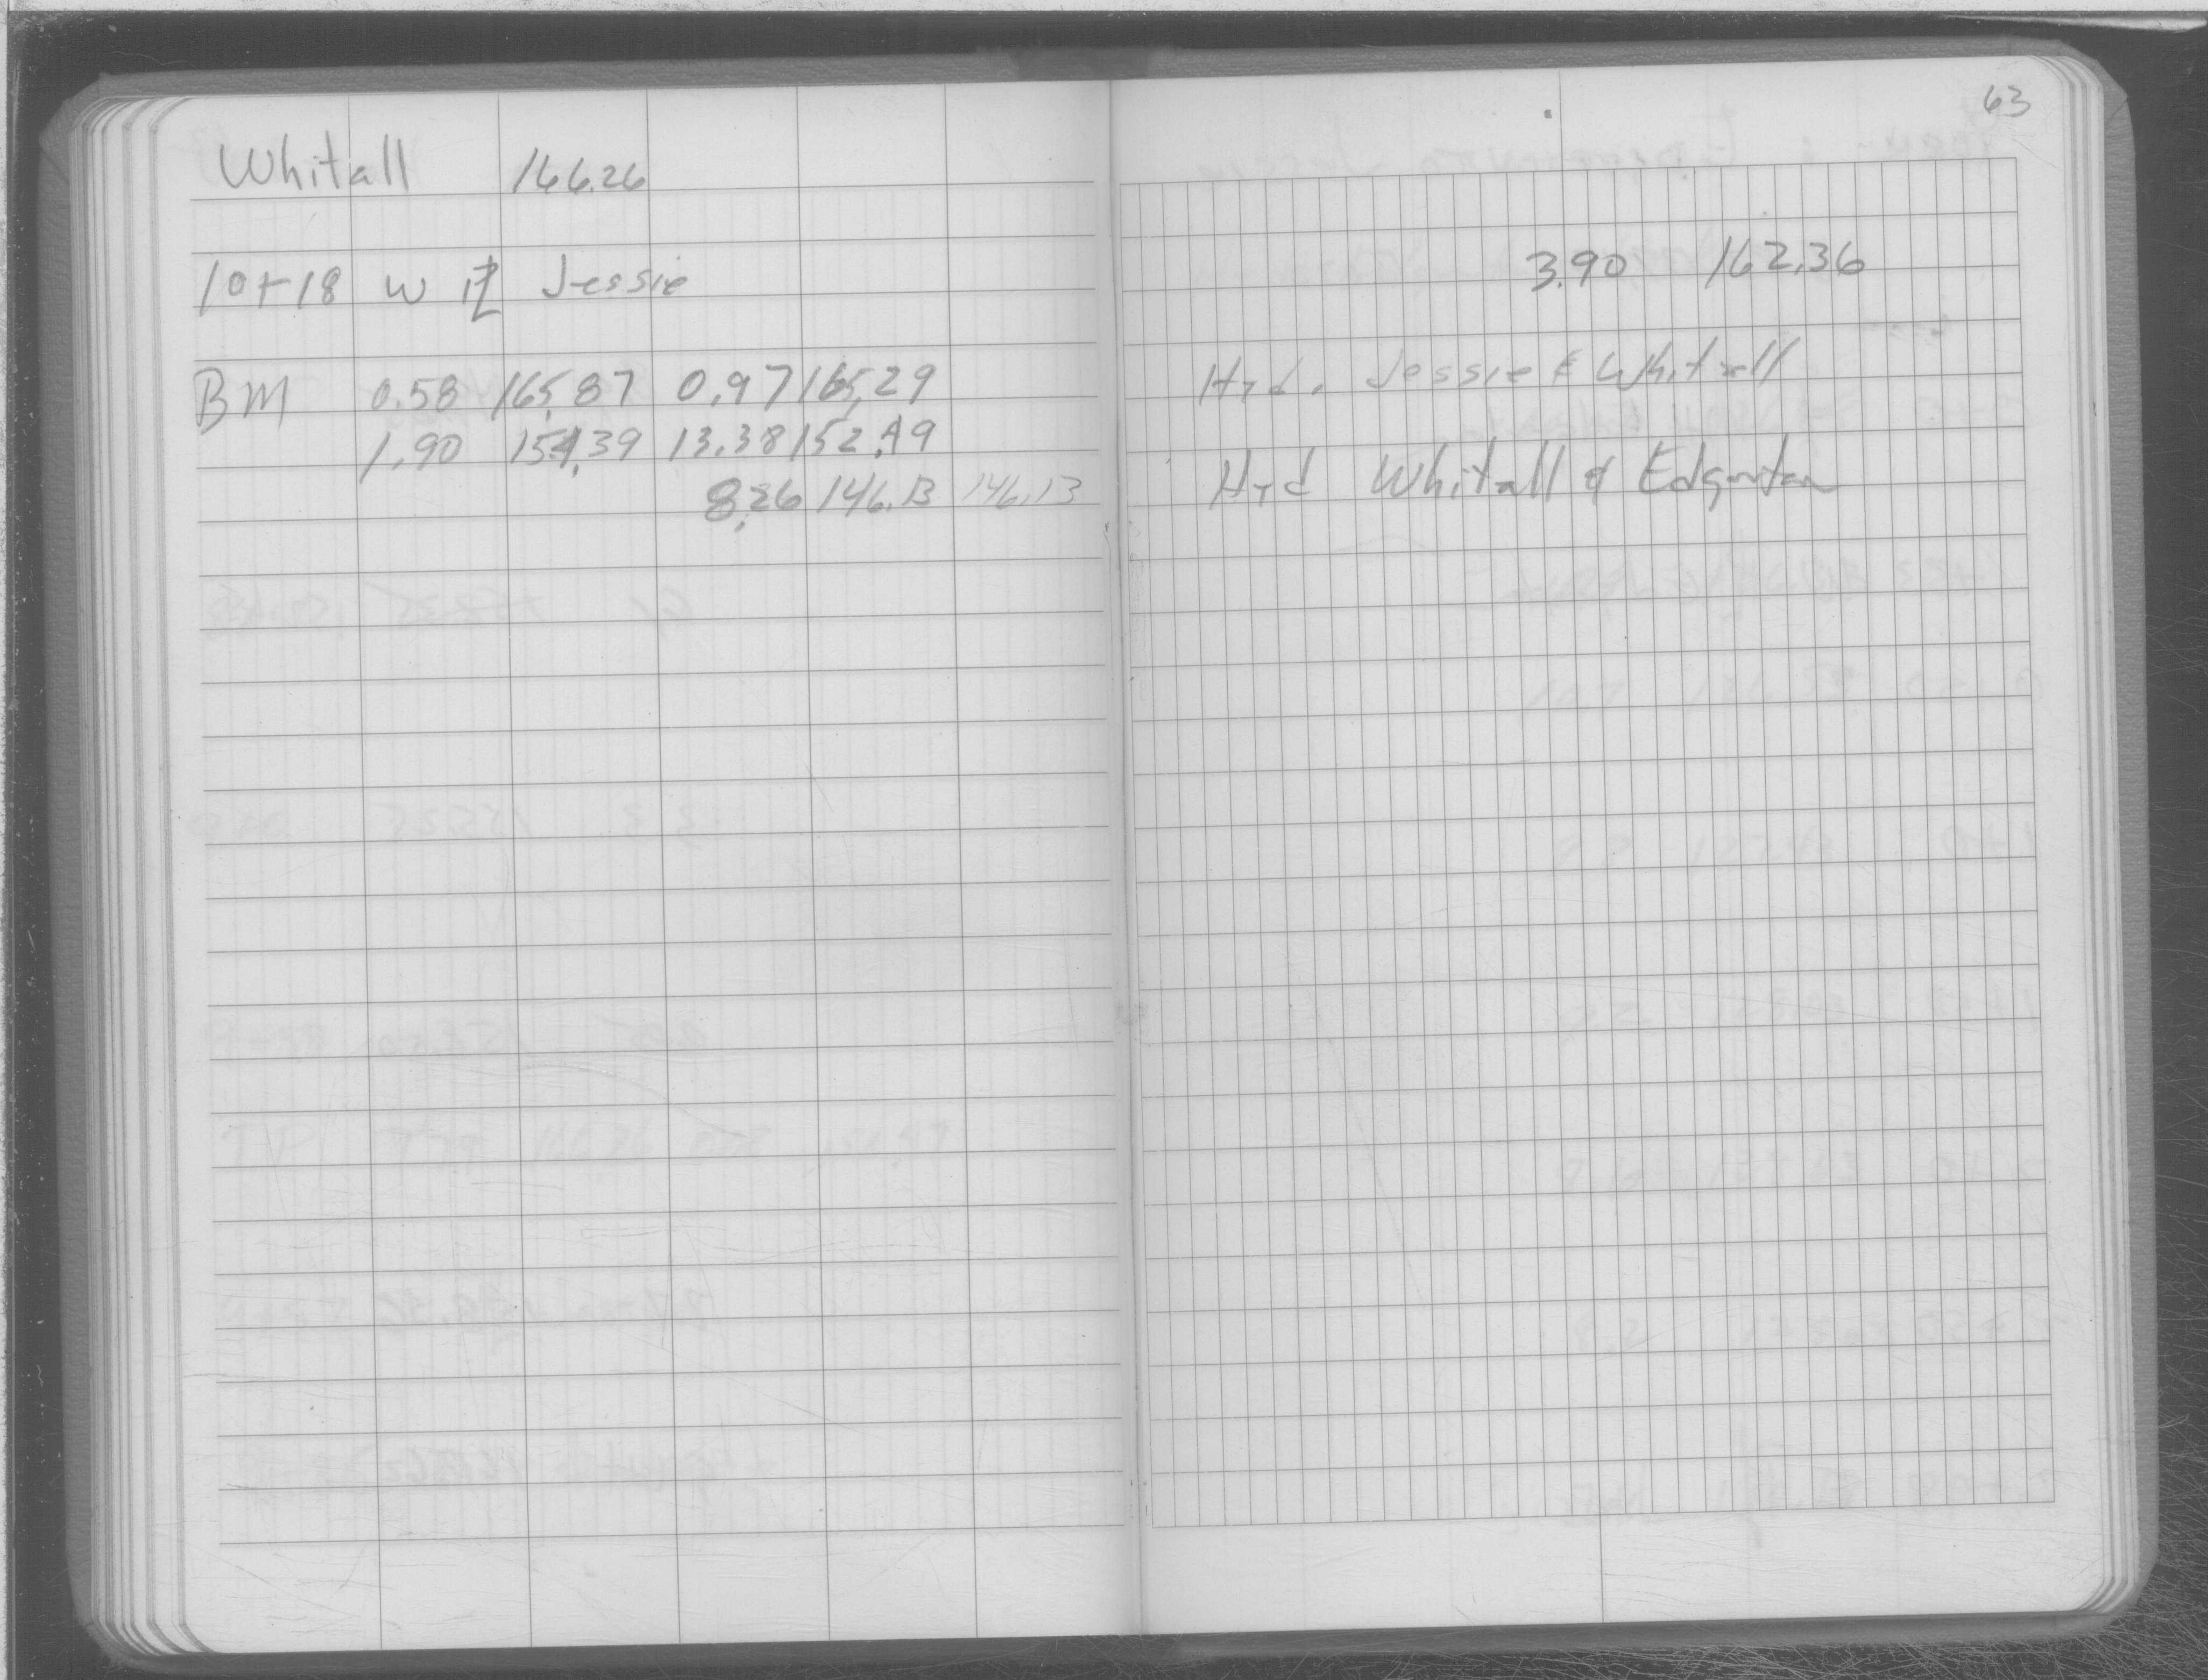 63
Whitall 166.26
10+18 W ⅊ Jessie 3.90 162.36
BM 0.58 165.87 0.97 165.29 Hyd. Jessie & Whitall
1.90 154.39 13.38 152.49 Hyd Whitall & Edgerton
8.26 146.13 146.13